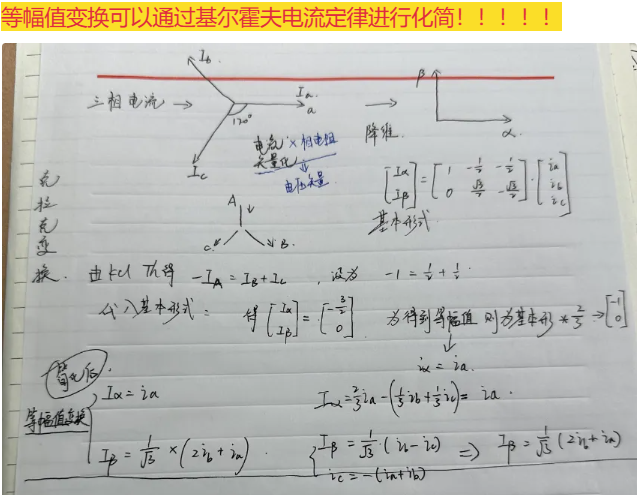 等幅值变换可以通过基尔霍夫电流定律进行化简!!!!!
三相电流 → 120° Ib Ia a Ic → 降维. β α
电流 × 相电阻
矢量化
电压矢量
[Iα Iβ] = [1 -1/2 -1/2 0 √3/2 -√3/2] · [ia ib ic]
基本形式
克拉克变换.
A B. C
由 kcl Th 得 -IA = IB + IC , 设为 -1 = 1/2 + 1/2.
代入基本形式: 得 [Iα Iβ] = [-3/2 0] 为得到等幅值 则为基本形 * 2/3 → [-1 0]
iα = ia.
简化后.
等幅值变换
Iα = ia Iα = 2/3 ia - (1/3 ib + 1/3 ic) = ia.
Iβ = 1/√3 × (2ib + ia). Iβ = 1/√3 · (ib - ic) ⇒ Iβ = 1/√3 (2ib + ia)
ic = -(ia + ib)